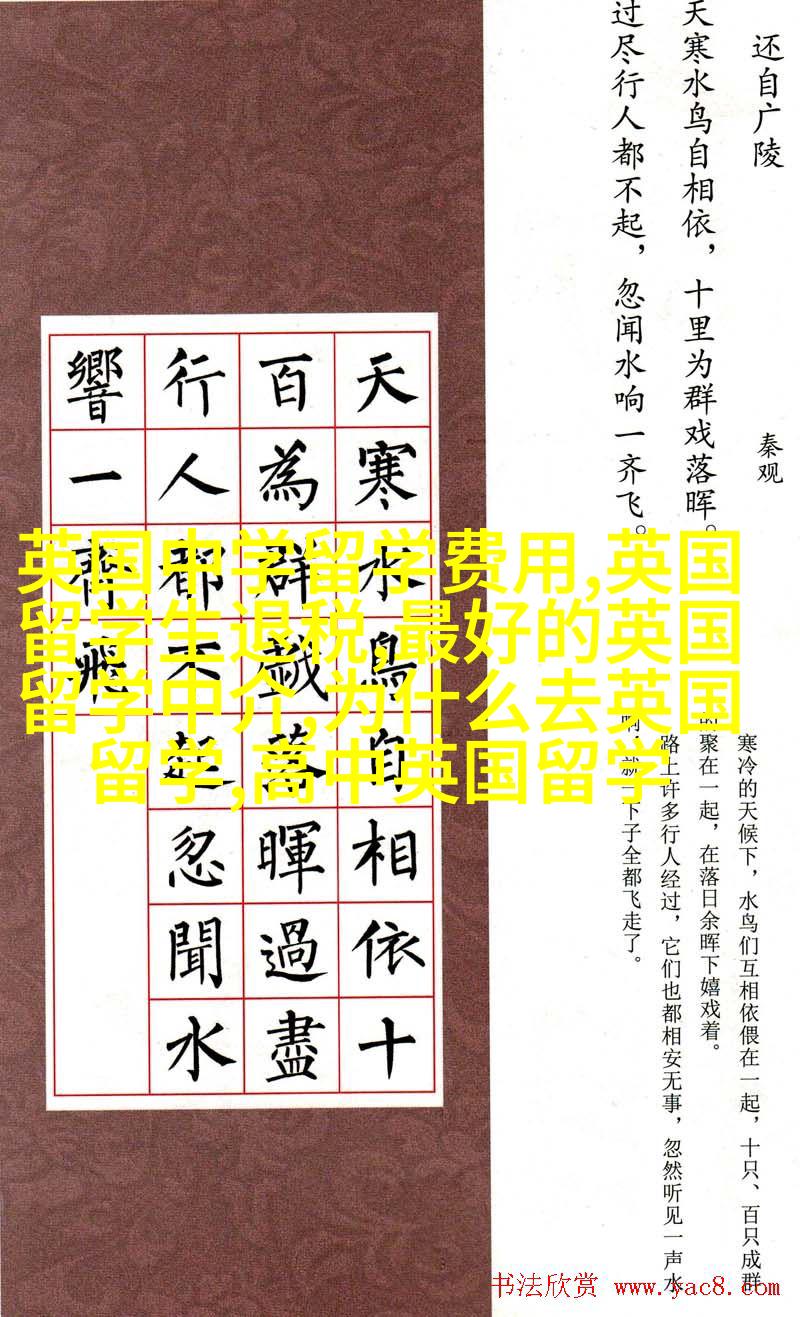 还自广陵
秦观
天寒水鸟自相依，十里为群戏落晖。
过尽行人都不起，忽闻水响一齐飞。
寒冷的天候下，水鸟们互相依偎在一起，十只、百只成群
的聚在一起，在落日余晖下嬉戏着。
路上许多行人经过，它们也都相安无事，忽然听见一声水
啊，就一下子全都飞走了。
天寒水鳥自相依十
百為群戲落暉過盡
行人都不起忽聞水
響一齊飛
英国中学留学费用,英国
留学生退税,最好的英国
留学中介,为什么去英国
留学,高中英国留学
书法欣赏 www.yac8.com